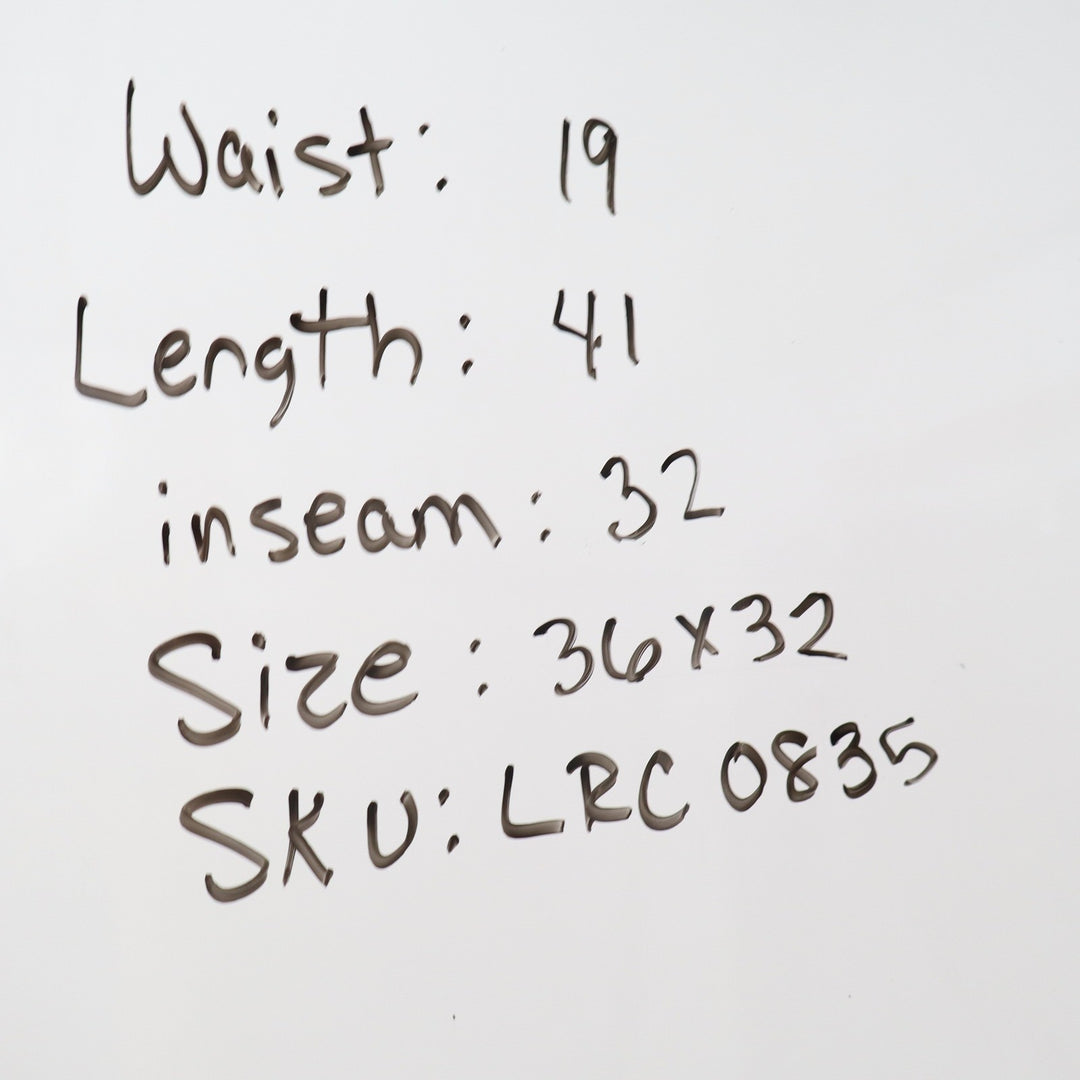 Waist: 19
Length: 41
inseam: 32
Size: 36x32
SKU: LRC 0835